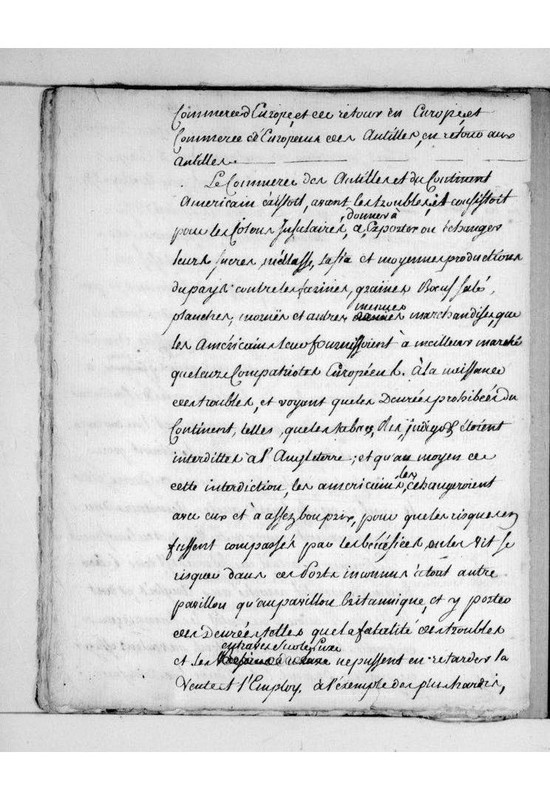 Commerce d'Europe, et de retour en Europe, et
Commerce d'Europeens des Antilles, en retour aux
Antilles.
Le Commerce des Antilles et du Continent
Americain existoit, avant les troubles, et consistoit
pour les Colons Insulaires, donner à
à Exporter ou échanger
leurs sucres, mélasse, tafia et moyennes productions
du pays contre les farines, graines Bœuf salé,
planches, morües et autres menues marchandises, que
les Américains leur fournissoient à meilleur marché
que leurs Compatriotes Européens. à la naissance
des troubles, et voyant que les Denrées prohibées du
Continent, telles, que les tabacs, Ris, indigos étoient
interdittes à l'Angleterre; et qu'au moyen de
cette interdiction, les américains, les échangeroient
avec eux et à assez bon prix, pour que les risques en
fussent compassés par les bénéfices, on les vit se
risquer dans ces Ports inconnus à tout autre
pavillon qu'au pavillon britannique, et y porter
des Denrées telles que la fatalité des troubles
et les ne pussent en retarder la
Vente et l'Employ. à l'exemple des plus hardis,